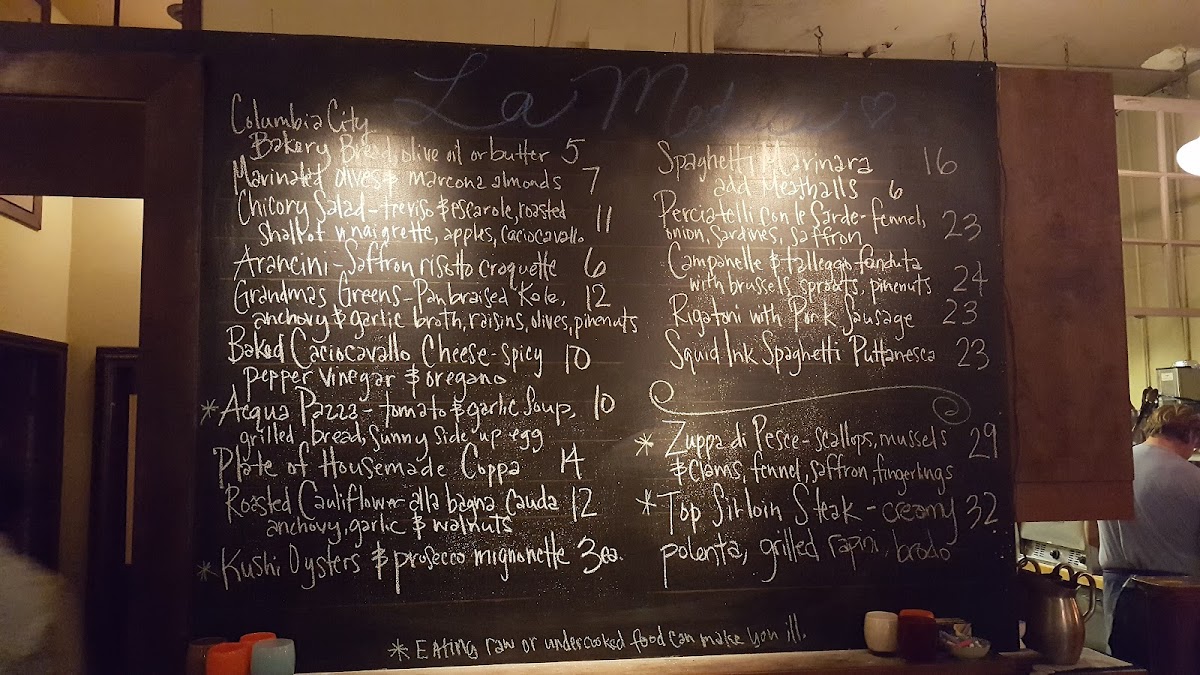 La Medusa ♡
Columbia City
Bakery Bread, olive oil or butter 5
Marinated olives & marcona almonds 7
Chicory Salad - treviso & escarole, roasted
shallot vinaigrette, apples, caciocavallo 11
Arancini - Saffron risotto croquette 6
Grandmas Greens - Pan braised Kale, 12
anchovy & garlic broth, raisins, olives, pinenuts
Baked Caciocavallo Cheese - spicy 10
pepper vinegar & oregano
* Acqua Pazza - tomato & garlic soup, 10
grilled bread, sunny side up egg
Plate of Housemade Coppa 14
Roasted Cauliflower alla bagna cauda 12
anchovy, garlic & walnuts
* Kushi Oysters & prosecco mignonette 3ea.
Spaghetti Marinara 16
add Meatballs 6
Perciatelli con le Sarde - fennel,
onion, sardines, saffron 23
Campanelle & talleggio fonduta
with brussels sprouts, pinenuts 24
Rigatoni with Pork Sausage 23
Squid Ink Spaghetti Puttanesca 23
* Zuppa di Pesce - scallops, mussels 29
& clams, fennel, saffron, fingerlings
* Top Sirloin Steak - creamy 32
polenta, grilled rapini, brodo
* Eating raw or undercooked food can make you ill.